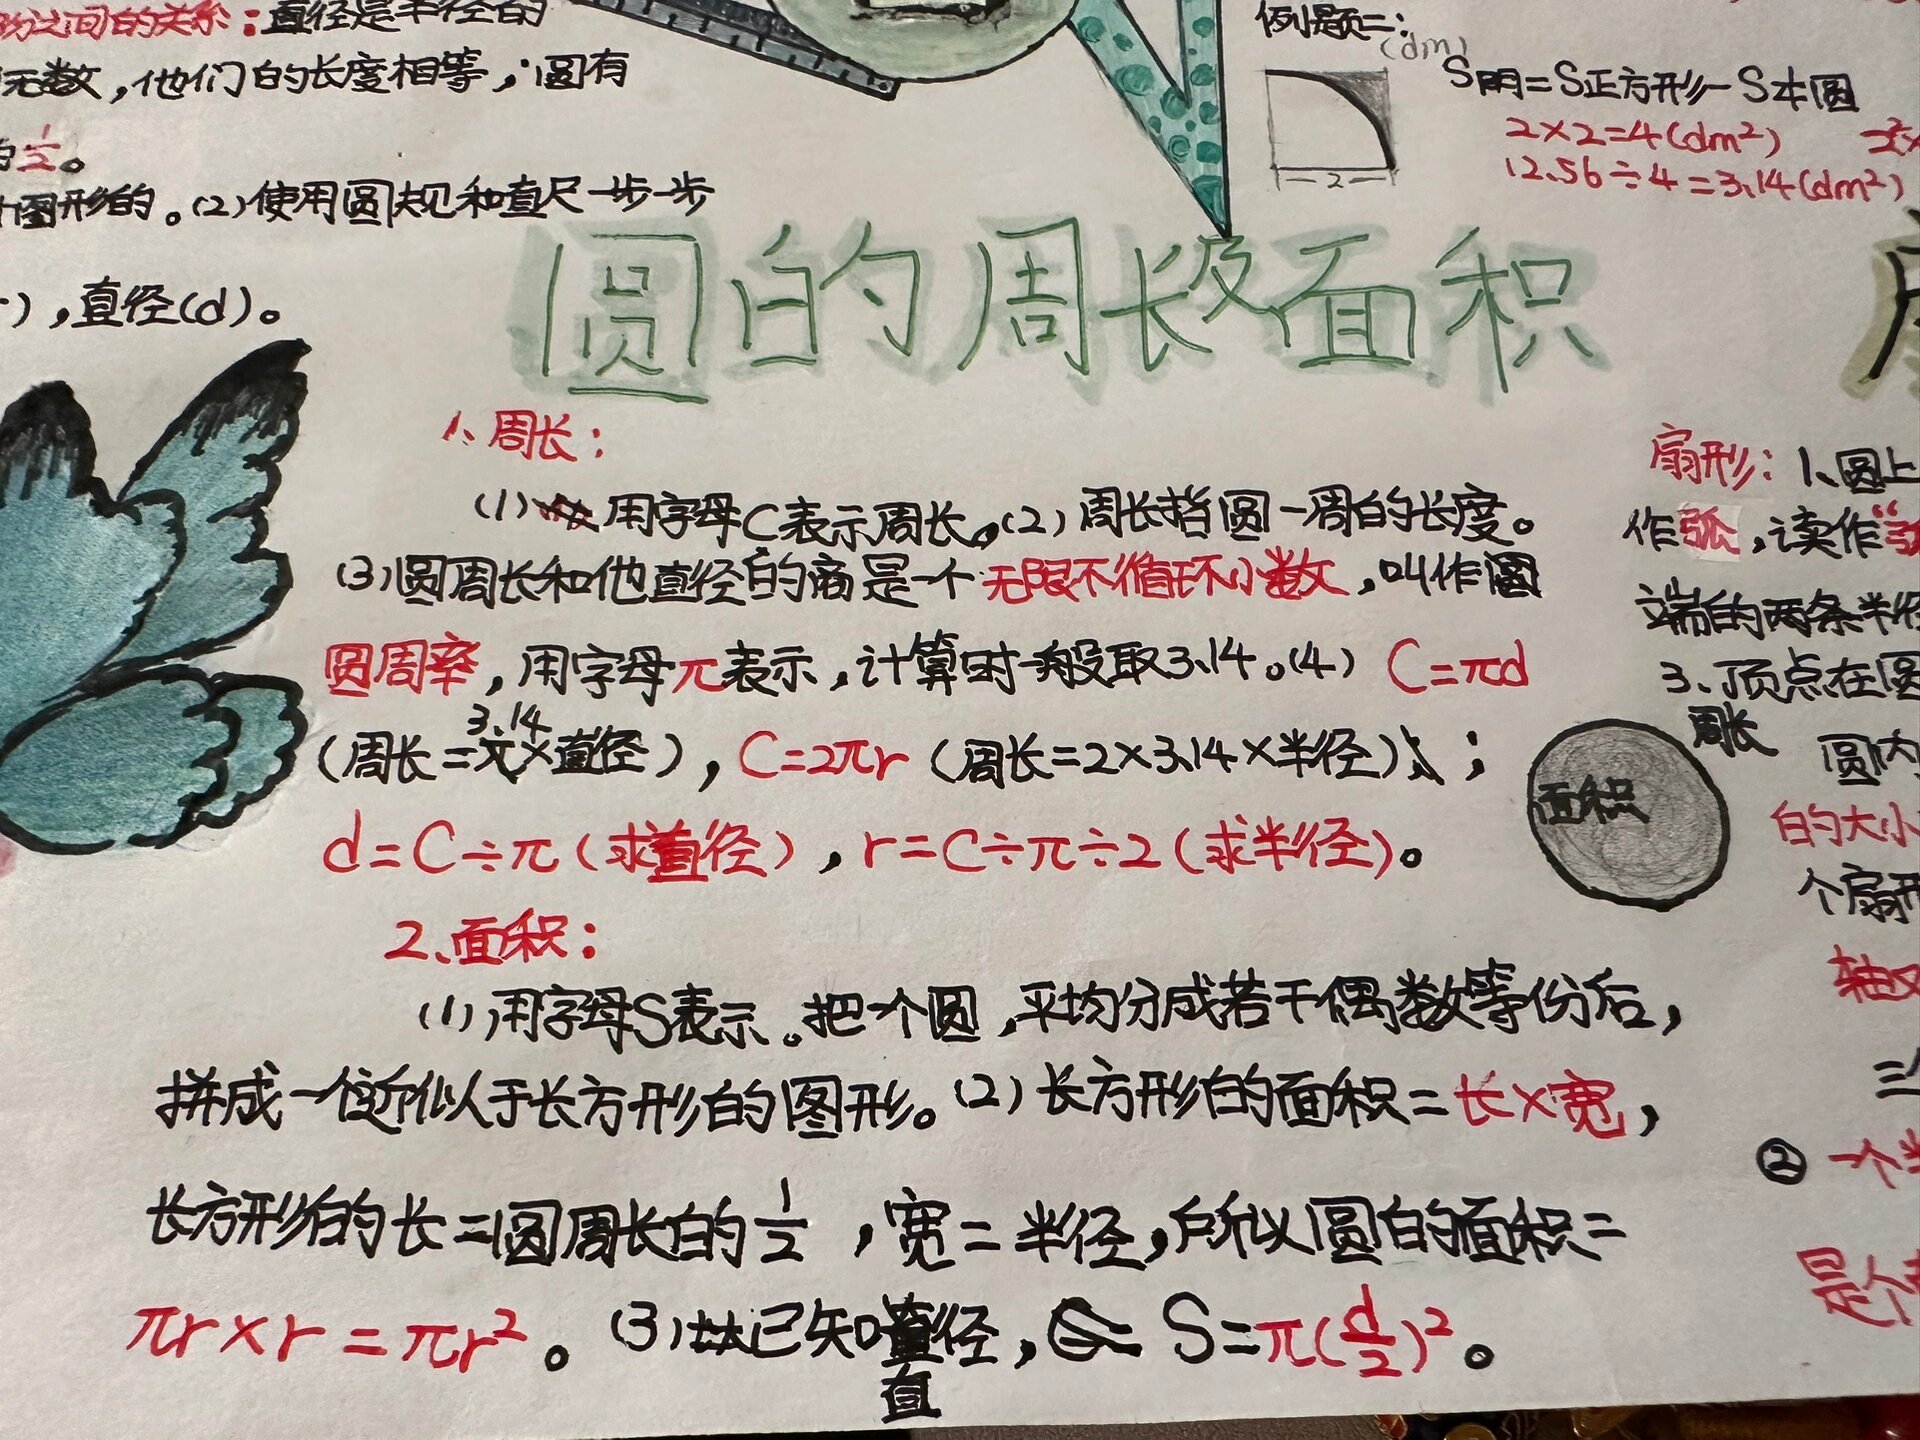 之间的关系：直径是半径的
无数，他们的长度相等，圆有
的1/2。
图形的。(2)使用圆规和直尺一步一步
)，直径(d)。
例题二：
(dm)
S阴=S正方形-S本圆
2×2=4(dm²)
12.56÷4=3.14(dm²)
2
圆的周长及面积
1、周长：
(1)用字母C表示周长。(2)周长指圆一周的长度。
(3)圆周长和他直径的商是一个无限不循环小数，叫作圆
圆周率，用字母π表示，计算时一般取3.14。(4) C=πd
3.14
(周长=π×直径)，C=2πr (周长=2×3.14×半径)；
d=C÷π(求直径)，r=C÷π÷2(求半径)。
2、面积：
(1)用字母S表示。把一个圆，平均分成若干偶数等份后，
拼成一个近似于长方形的图形。(2)长方形的面积=长×宽，
长方形的长=圆周长的1/2，宽=半径，所以圆的面积=
πr×r=πr²。(3)已知直径，S=π(d/2)²。
直
周长
面积
扇形：1、圆上
作弧，读作“弧
端的两条半径
3、顶点在圆
圆内
的大小
个扇形
轴
三
② 一个
是个